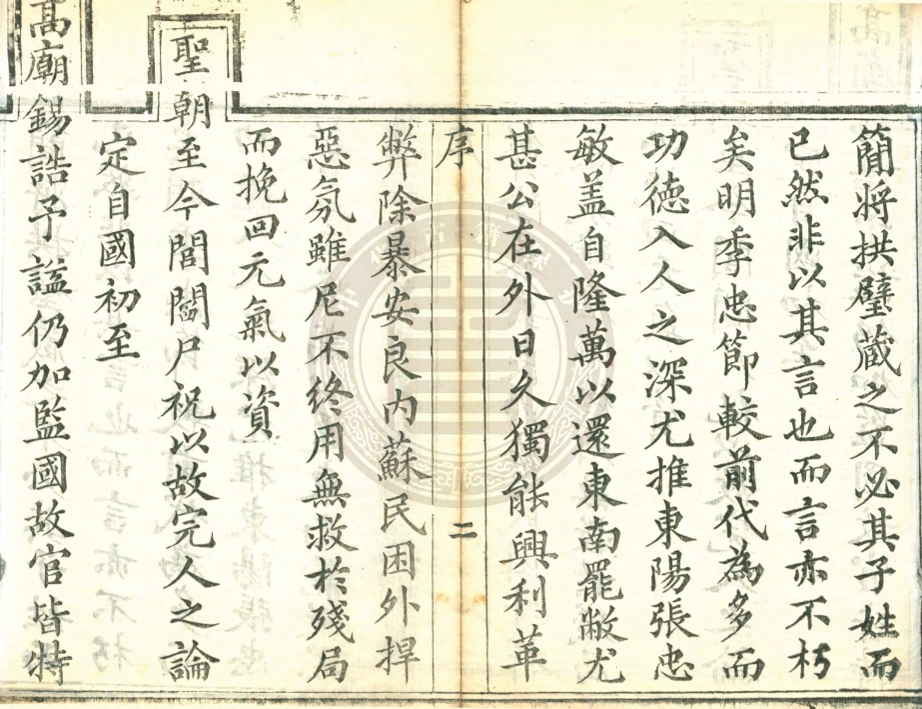 簡將拱璧蔵之不必其子姓而
已然非以其言也而言亦不朽
矣明季忠節較前代為多而
功德入人之深尤推東陽張忠
敏盖自隆萬以還東南罷敝尤
甚公在外日久獨能興利革
序 二
弊除暴安良內蘇民困外捍
惡氛雖尼不終用無救於殘局
而挽回元氣以資
聖朝至今閭閻尸祝以故完人之論
定自國初至
高廟錫誥予諡仍加監國故官皆特